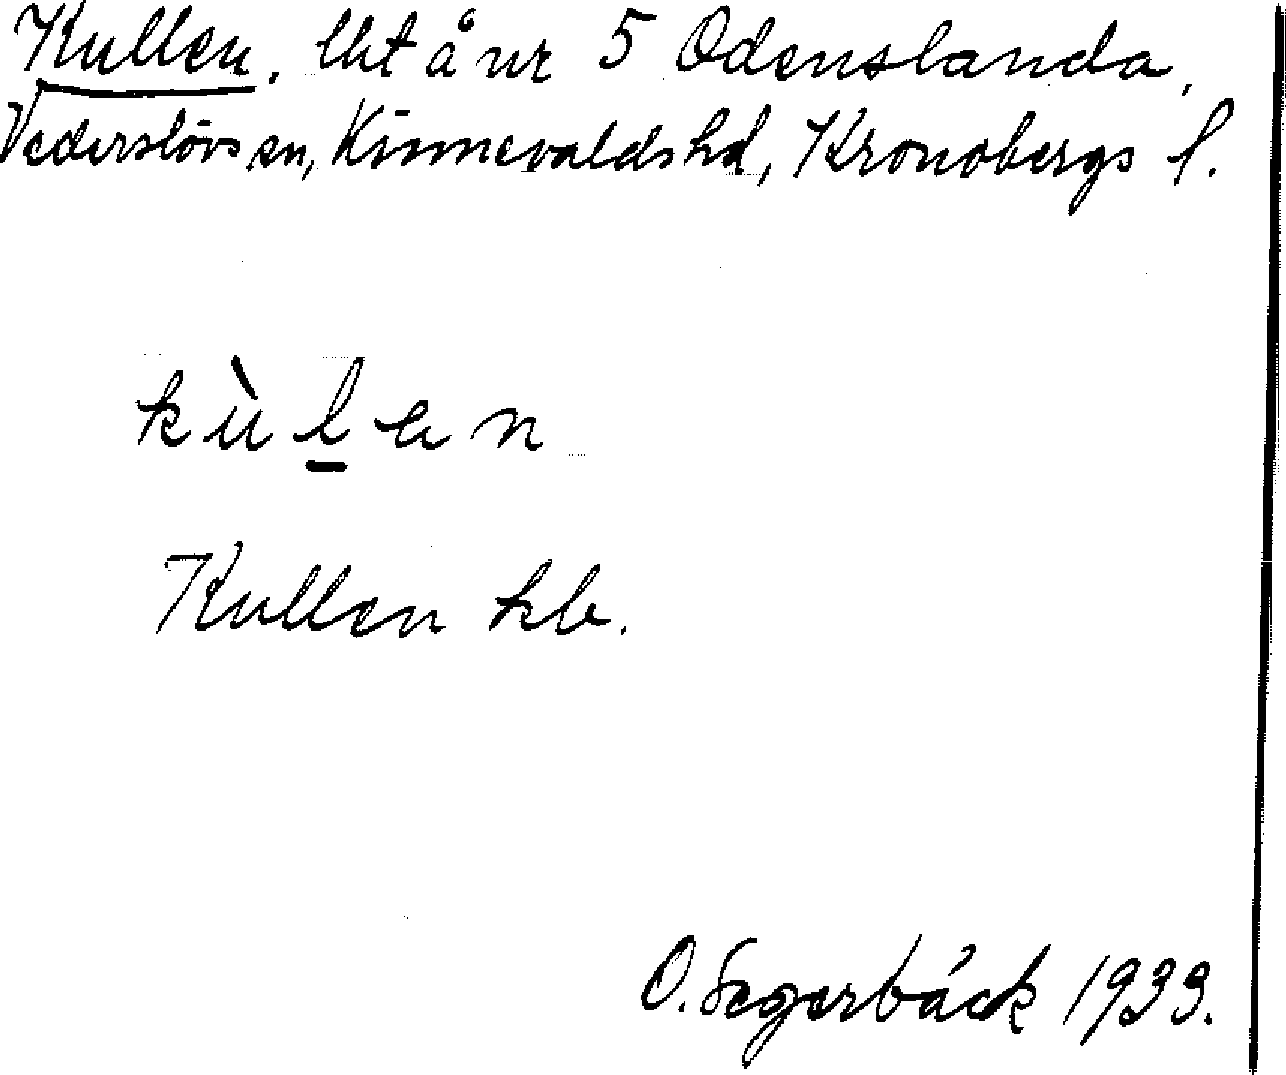 Kullen, lht å nr 5 Odenslanda,
Vederslövs sn, Kinnevalds hd, Kronobergs l.
kùl̲en
Kullen kb.
O. Segerbäck 1933.